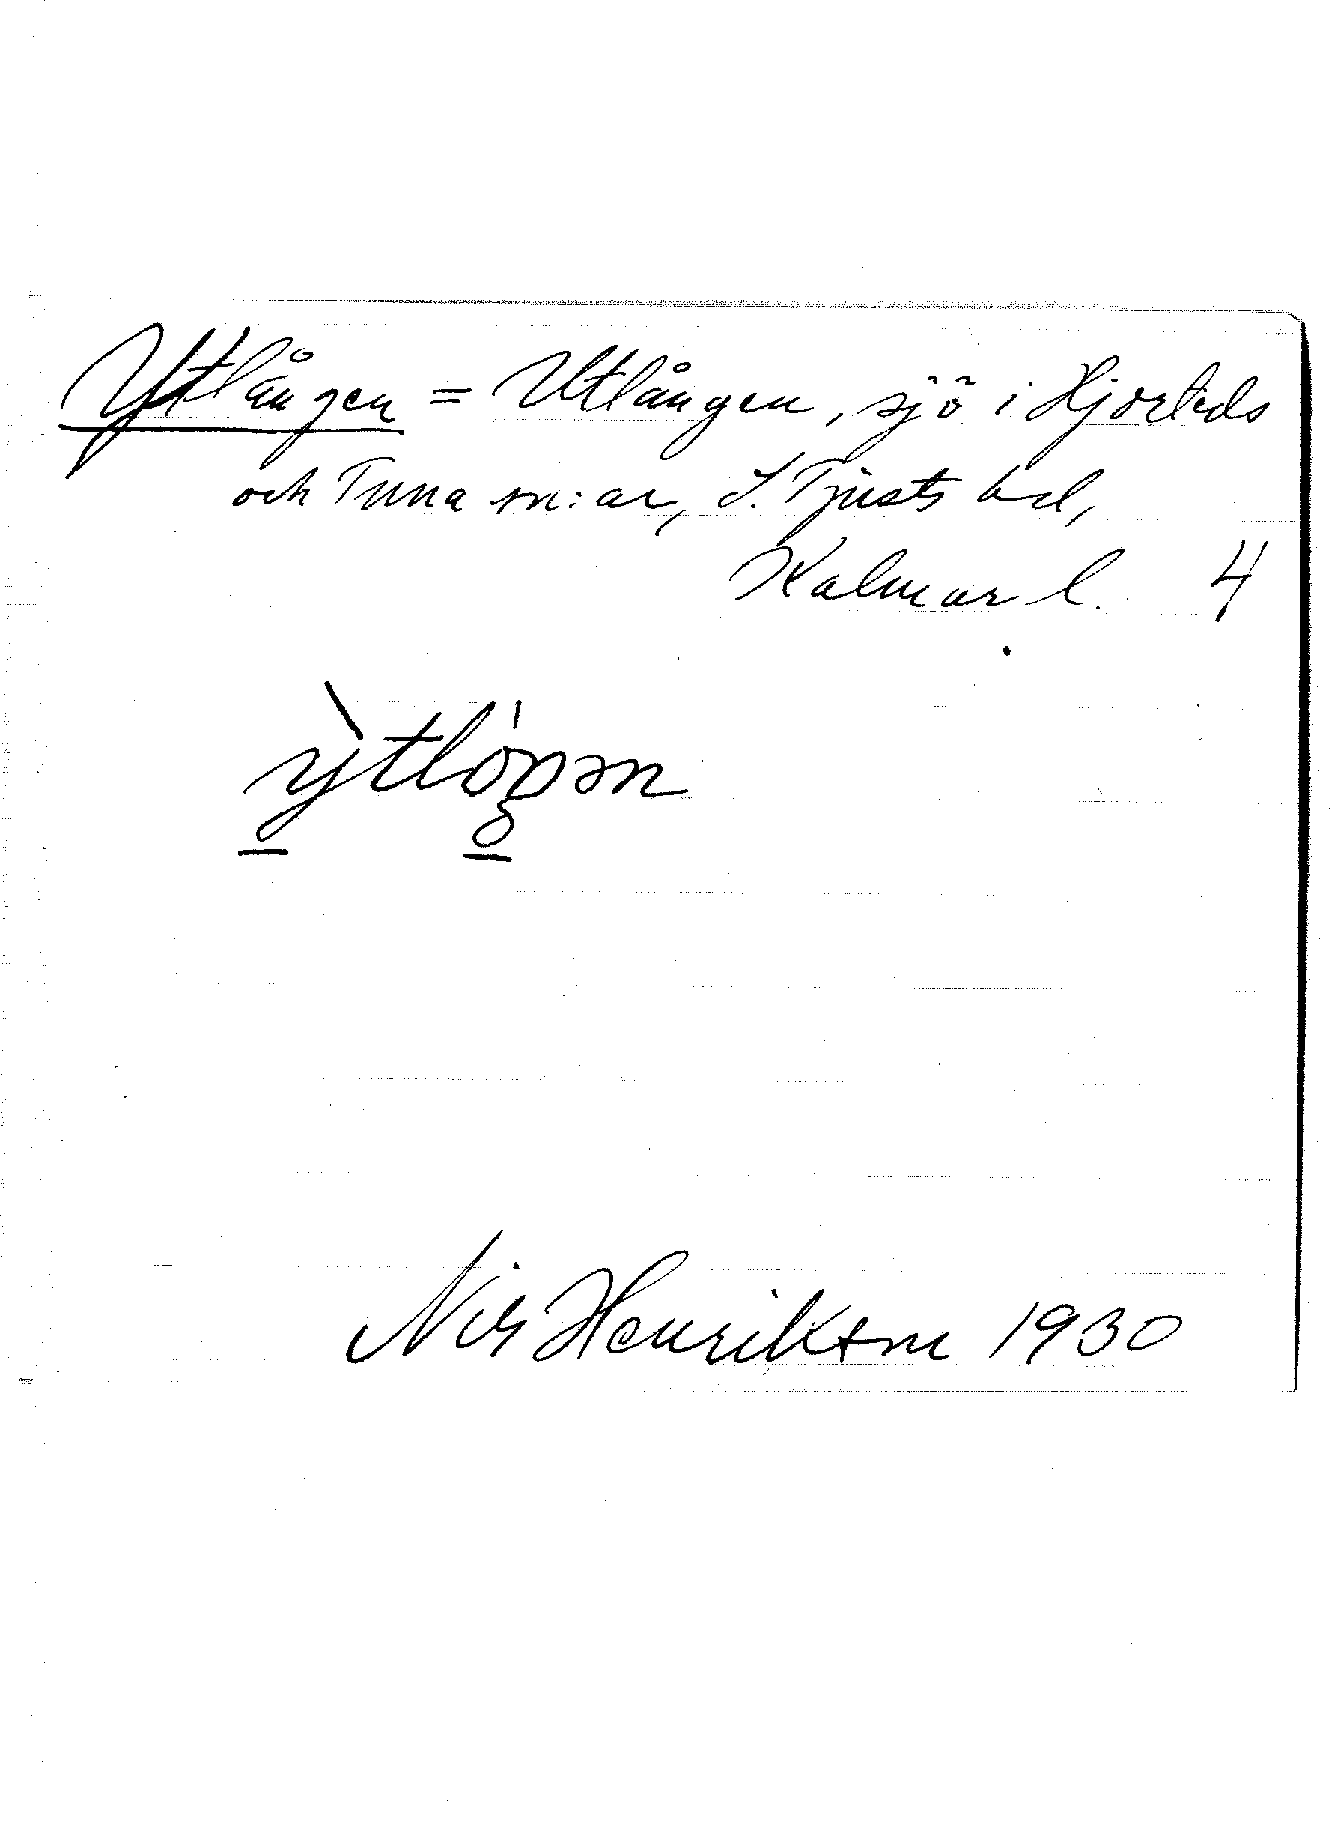 Ytlången = Utlången, sjö i Hjorteds
och Tuna sn:ar, S. Tjusts hd,
Kalmar l. 4
Nils Henriksson 1930